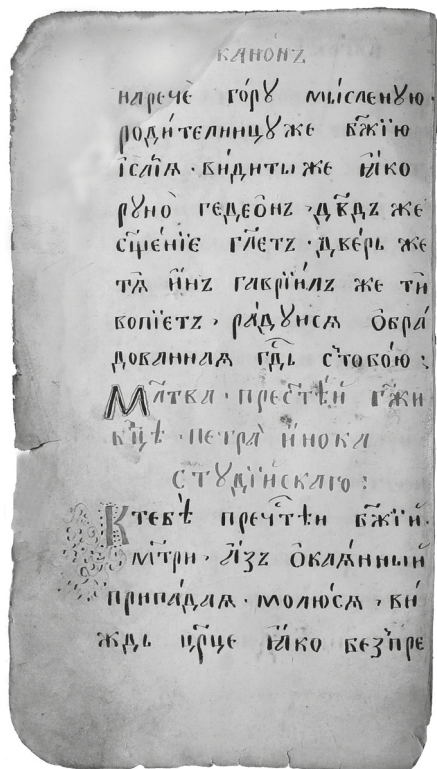 канонъ
нарече́ го́рꙋ мы́сленꙋю ·
роди́телницꙋ же бж҃їю
і҆са́їѧ · ви́дитъ же ꙗ҆́ко
рꙋно̀ гедео́нъ · дв҃дъ же
сщ҃е́нїе гл҃етъ · две́рь же
тѧ̀ и҆́нъ гаврїи́лъ же ти
вопїе́тъ , ра́дꙋисѧ ѻ҆бра́
дованнаѧ гд҃ь с̾тобо́ю :
Мл҃тва · прест҃ѣ́й гж҃и
бц҃ѣ · петра̀ и҆́нока
стꙋді́йскаго :
К тебѣ̀ преч҃тѣи бж҃їй ·
мт҃ри · а҆́зъ ѻ҆каѧ́нный
припа́даѧ · молю́сѧ , ви́
ждь цр҃це ꙗ҆́ко без̾пре